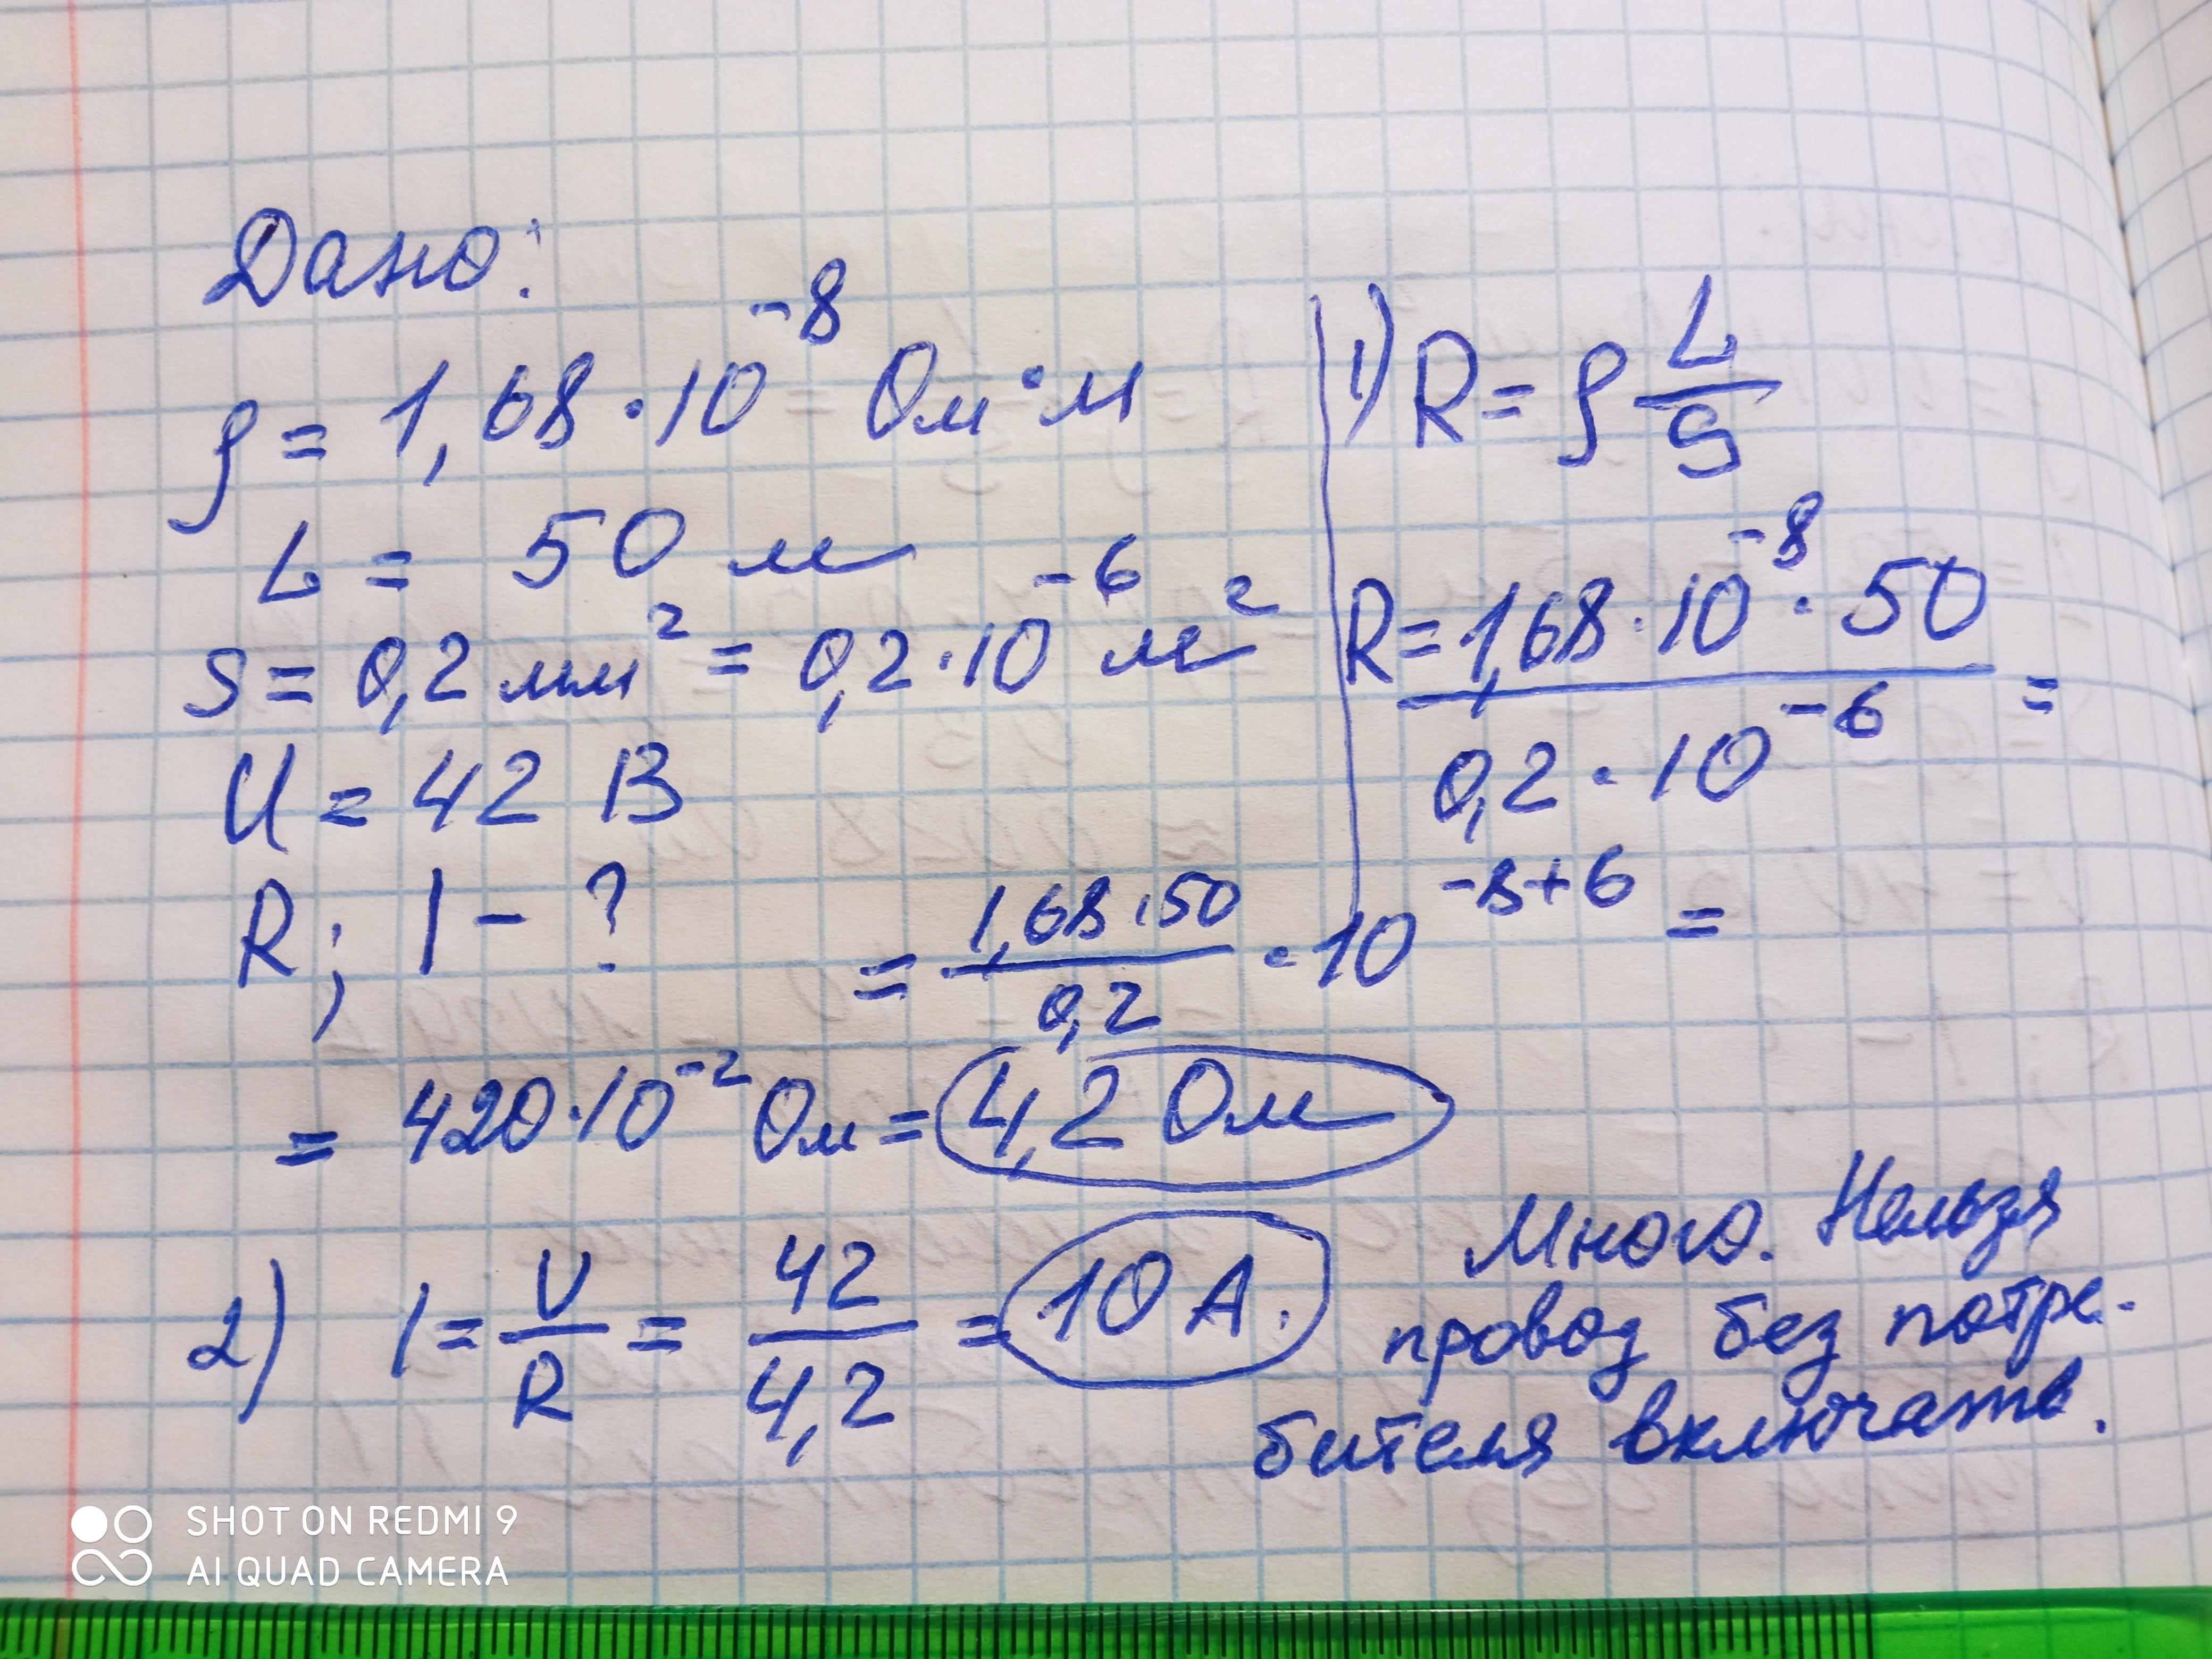 Дано:
ρ = 1,68 · 10⁻⁸ Ом · м
L = 50 м
S = 0,2 мм² = 0,2 · 10⁻⁶ м²
U = 42 В
R; I - ?
1) R = ρ L/S
R = 1,68 · 10⁻⁸ · 50 / 0,2 · 10⁻⁶ =
= 1,68 · 50 / 0,2 · 10⁻⁸⁺⁶ =
= 420 · 10⁻² Ом = 4,2 Ом
2) I = U/R = 42/4,2 = 10 А.
Много. Нельзя
провод без потре-
бителя включать.
SHOT ON REDMI 9
AI QUAD CAMERA